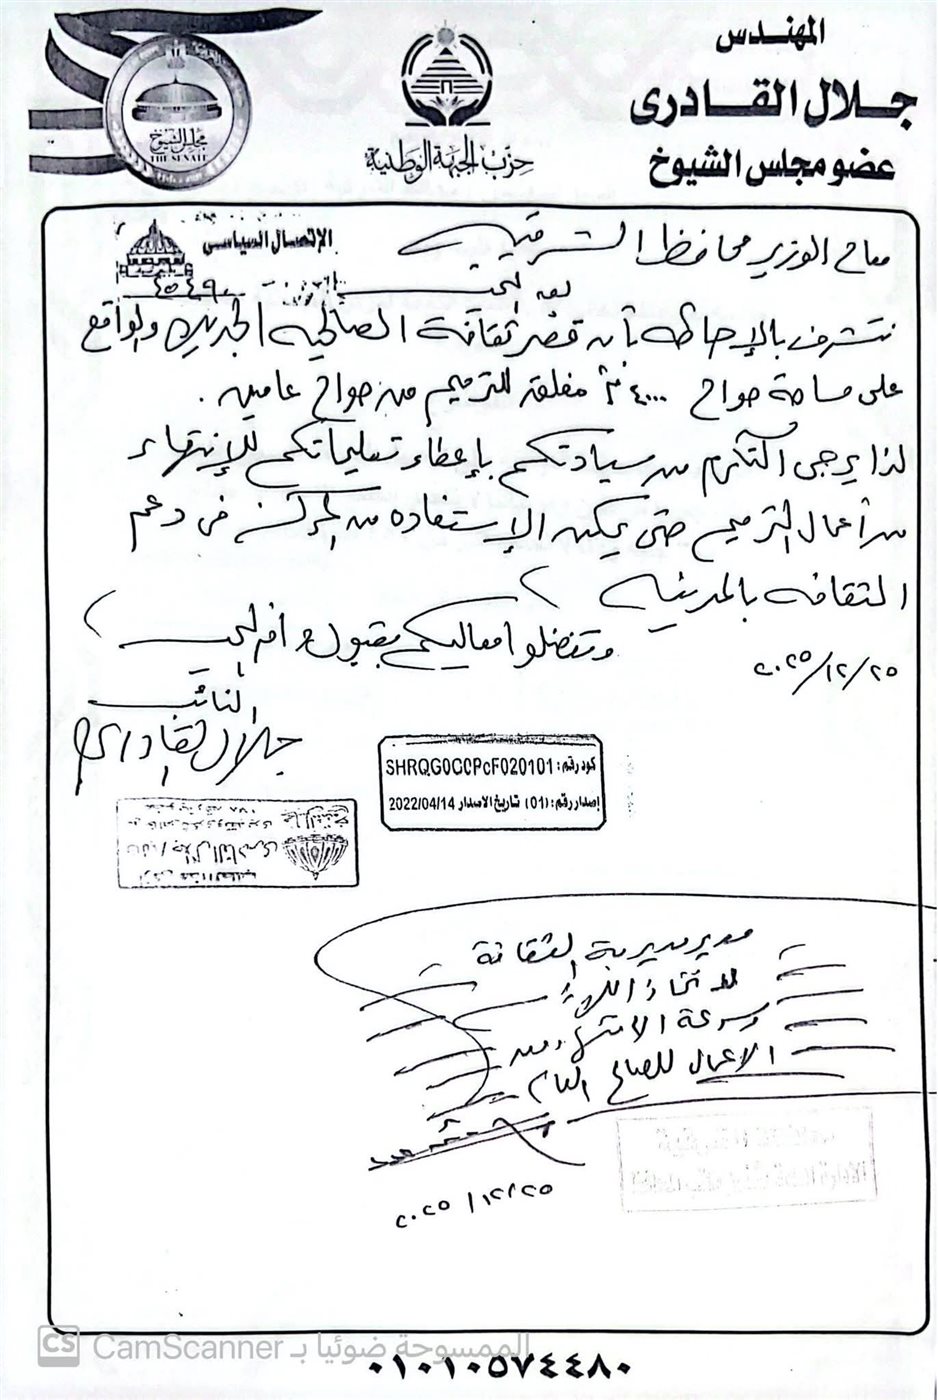 المهندس
جلال القادرى
عضو مجلس الشيوخ
حزب الجبهة الوطنية
مجلس الشيوخ
THE SENATE
الإتصال السياسى
معالى الوزير محافظ الشرقية
بعد التحية
نتشرف بالإحاطه بأن قصر ثقافة الصالحيه الجديده والواقع
على مساحة حوالى ٤٠٠٠ م٢ مغلقه للترميم من حوالى عامين .
لذا يرجى التكرم من سيادتكم بإعطاء تعليماتكم للإنتهاء
من أعمال الترميم حتى يمكن الإستفاده من المركز فى دعم
الثقافه بالمدينه
وتفضلوا معاليكم بقبول وافر التحيه
٢٠٢٥/١٢/٢٥
النائب
جلال القادرى
كود رقم : SHRQG0CCPcF020101
إصدار رقم : (01) تاريخ الاصدار 2022/04/14
مدير مديرية الثقافة
لاتخاذ اللازم
وسرعة الانتهاء من
الاعمال للصالح العام
٢٠٢٥/١٢/٢٥
الممسوحة ضوئيا بـ CamScanner
CS
٠١٠١٠٥٧٤٤٨٠